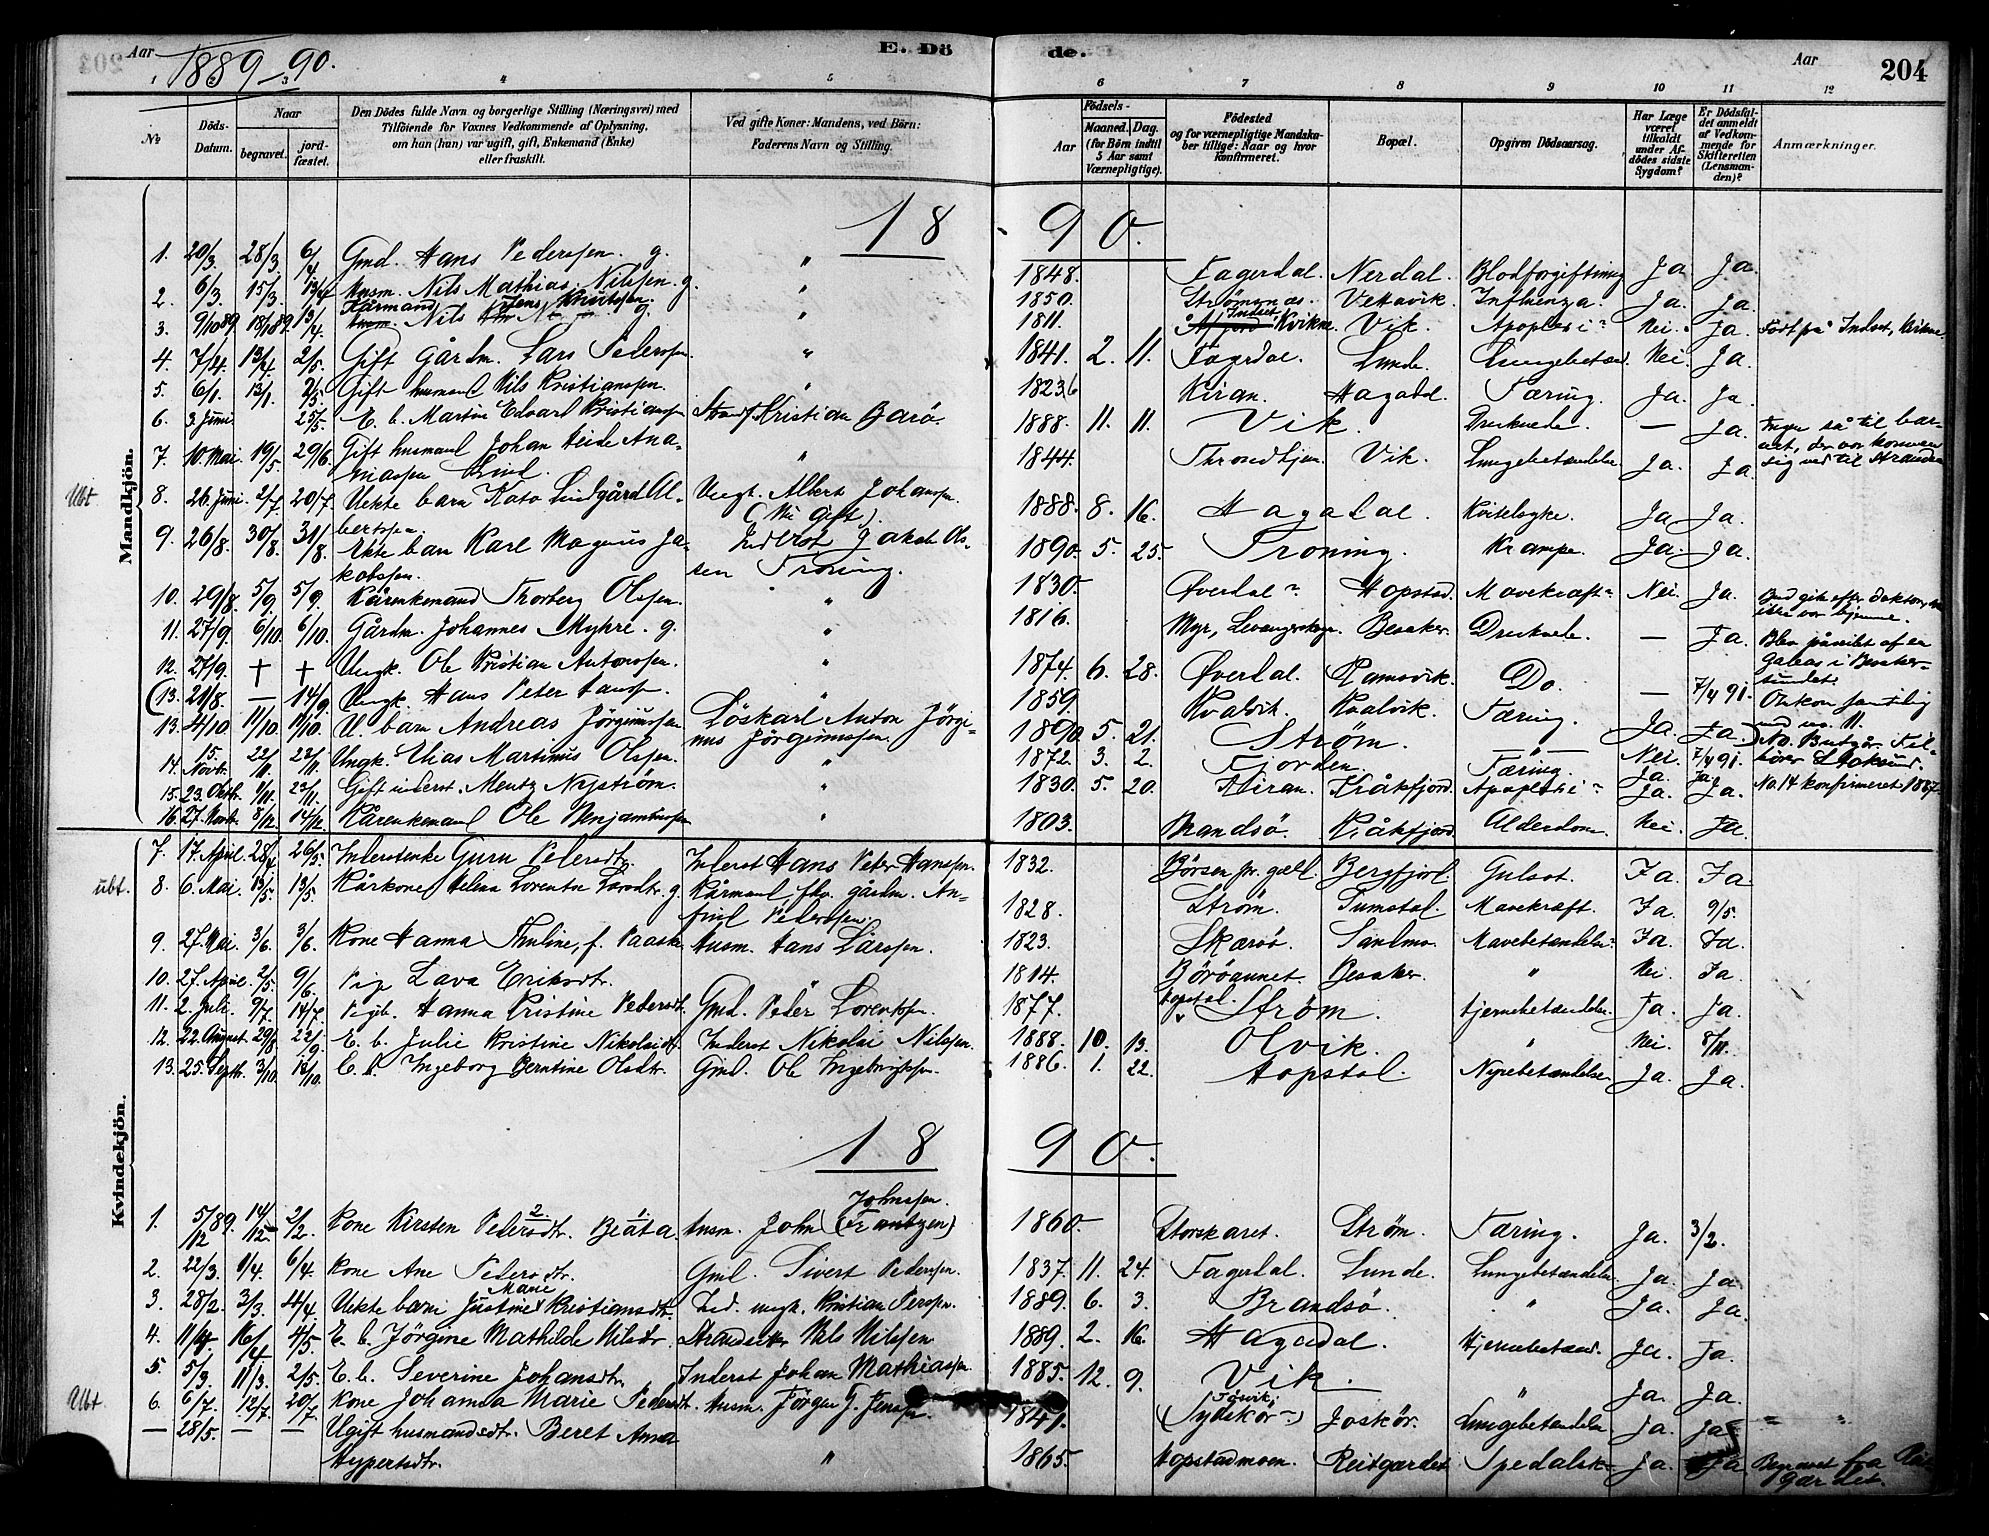 Aar
1889-90.
E. Dö
de.
Aar
204
1 2 3 4 5
6 7 8 9 10 11 12
№
Döds-Datum.
Naar
begravet.
jord-fæstet.
Den Dödes fulde Navn og borgerlige Stilling (Næringsvei) med
Tilföiende for Voxnes Vedkommende af Oplysning,
om han (han) var ugift, gift, Enkemand (Enke)
eller fraskilt.
Ved gifte Koner: Mandens, ved Börn:
Faderens Navn og Stilling.
Födsels-
Aar
Maaned. Dag.
(for Börn indtil
5 Aar samt
Værnepligtige).
Födested
og for værnepligtige Mandska-
ber tillige: Naar og hvor
konfirmeret.
Bopæl.
Opgiven Dödsaarsag.
Har Læge
været
tilkaldt
under Af-
dödes sidste
Sygdom?
Er Dödsfal-
det anmeldt
af Vedkom-
mende for
Skifteretten
(Lensman-
den)?
Anmærkninger.
Mandkjön.
18 90.
1. 20/3 28/3 6/4 Gmd. Hans Pederssen. g. " 1848. Fagerdal. Nerdal. Blodforgiftning Ja. Ja.
2. 6/3. 15/3. 13/4 Husm. Nils Mathias Nilssen. g. " 1850. Vettavik. Influenza. Ja. Ja.
3. 9/10 89. 18/1 89. 13/4. Kårmand Nils g. " 1811. Indset Kvikne. Vik. Apoplexi Nei. Ja. Födt på Indset, Kvikne.
4. 7/4. 13/4. 2/5. Gift Gårdm. Lars Pederssen " 1841. 2. 11. Fagerdal. Lunde. Lungebetænd. Nei. Ja.
5. 6/1. 13/1. 2/5. Gift husmand Nils Kristianssen. " 1823. Kiran. Hagadal. Tæring. Ja. Ja.
6. 3. Juni. 25/5. E. b. Martin Edvard Kristianssen Strands. Kristian Barö. 1888. 11. 11. Vik. Druknede. — Ja. Ingen så til bar-
7. 10. Mai. 19/5. 29/6. Gift husmand Johan Heide Ana-
niassen Lind. " 1844. Throndhjem. Vik. Lungebetændelse. Ja. Ja.
Ubt 8. 26. Juni. 2/7. 20/7. Uekte barn Kato Lindgård Al-
bertssen. Ungk. Albert Johanssen.
(Nu gift). 1888. 8. 16. Hagadal. Ja Ja.
9. 26/8. 30/8. 31/8. Ekte barn Karl Magnus Ja-
kobssen. Inderst Jakob Ol-
sen Troning. 1890. 5. 25. Troning. Krampe. Ja. Ja.
10. 29/8. 5/9. 5/9. Kårenkemand Thorberg Olssen. " 1830. Øverdal Hopstad. Mavekræft Nei. Ja. Bud gik efter doktor, men
11. 27/9. 6/10. 6/10. Gårdm. Johannes Myhre. g. " 1816. Myr, Levangerskogn. Besaker. Druknede. — Ja. Blev påseilet af en
Galeas i Besaker-
sundet.
12. 27/9. + + Ungk. Ole Kristian Antonssen. " 1874. 6. 28. Øverdal. Ramsvik. Do. — 7/4 91. Omkom samtidig
med no. 11.
(13. 21/8. — 14/9. Ungk. Hans Peter Hanss. " 1859. Hvalvik. Hvalvik. Tæring. Ja. Ja.
13. 4/10. 11/10. 11/10. U. barn Andreas Jörginussen Löskarl Anton Jörgi-
nus Jörginussen. 1890. 5. 21. Strøm. — Nei. 7/4 91.
14. 15. Novbr. 22/11. 23/11. Ungk. Elias Martinus Olssen. " 1872. 3. 2. Fjorden. Tæring. Ja. Ja.
15. 23. Oktbr. 1/11. 23/11. Gift inderst. Mentz Nyström. " 1830. 5. 20. Kiran. Kråkfjord. Apoplexi Ja. Ja. No. 14 konfirmeret 1887
16. 27. Novbr. 8/12. 14/12. Kårenkemand Ole Benjaminssen " 1803. Brandsö. Kråkfjord. Alderdom. Nei. Ja.
Kvindekjön.
7. 17. April. 28/4. 26/5. Inderstenke Guru Pedersdtr. Inderst Hans Peter Hanssen. 1832. Børsen pr.gjeld. Bergfjord. Gulsot. Ja. Ja
ubt. 8. 6. Mai. 13/5. 13/5. Kårkone Helena Lorentse Larsdtr. g. Kårmand fhv. gårdm. An-
find Pederssen. 1828. Strøm. Sumstad. Mavekræft. Ja. 9/5.
9. 27. Mai. 3/6. 3/6. Kone Hanna Thuline, f. Paaske Husm. Hans Larssen. 1823. Skærö. Sandmo. Mavebetændelse. Ja. Ja.
10. 27. April. 2/5. 9/6. Pige Lava Eriksdtr. 1814. Böröaunet. Besaker. " Nei. Ja.
11. 2. Juli. 9/7. 14/7. Pigeb. Hanna Kristine Pedersdt. Gmd. Peder Lorentssen. 1877. Hopstad. Strøm. Hjernebetændelse. Ja. Ja.
12. 22. August. 29/8. 22/9. E. b. Julie Kristine Nikolaidtr. Inderst Nikolai Nilssen. 1888. 10. 13. Olvik. " Nei. 8/11.
13. 25. Septb. 3/10. 12/10. E. b. Ingeborg Berntine Olsdtr. Gmd. Ole Ingebrigtssen. 1886. 1. 22. Hopstad. Nyrebetændelse Ja. Ja.
18 90.
1. 5/12 89. 14/12 2/2. Kone Kirsten Pedersdtr. Beata. Husm. John Johnssen. (Frantzen) 1860. Storskaret. Strøm. Tæring. Ja. 3/2.
2. 22/3. 1/4. 6/4. Kone Ane Pedersdtr. Gmd. Sivert Pederssen. 1837. 11. 24. Fagerdal. Lunde. Lungebetændelse. Ja. Ja.
3. 28/2. 3/3. 4/4. Uekte barn Justine Marie Kristiansdtr. Led. ungk. Kristian Perssen. 1889. 6. 3. Brandsö. " Ja. Ja.
4. 11/4. 16/4. 4/5. E. b. Jörgine Mathilde Nilsdtr. Strandsidd. Nils Nilssen. 1889. 2. 16. Hagadal. Hjernebetænd. Ja. Ja.
5. 5/3. 11/3. 2/5. E. b. Severine Johansdtr. Inderst Johan Mathiassen. 1885. 12. 9. Vik. " Ja. Ja.
Ubt 6. 6/7. 12/7. 20/7. Kone Johanna Marie Pedersdt. Husm. Jörgen J. Jenssen. 1841. (Sydskör) Joskör. Lungebetændelse Ja. Ja. " "
— 28/5. — — Ugift husmandsdtr. Beret Anna
Hypertsdtr. " 1865. Hopstadmoen. Reitgærdet Spedalsk. Ja. Ja Begravet fra Reit-
gærdet.